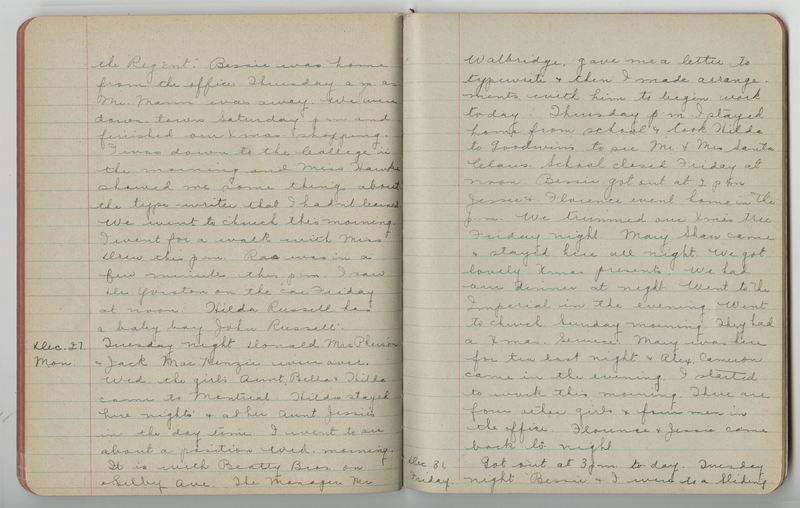 the Regent. Bessie was home
from the office Thursday a.m. as
Mr. Mann was away. We were
down town Saturday p.m. and
finished our Xmas shopping.
I was down to the College in
the morning and Miss Hawke
showed me some thing about
the type writer that I hadn't learned
We went to church this morning.
I went for a walk with Miss
Drew this p.m. Rae was in a
few minutes this p.m. I saw
Dr. on the car Friday
at noon. Hilda Russell has
a baby boy John Russell.
Dec. 27. Tuesday night Donald MacPherson
Mon & Jack MacKenzie were over.
Wed. the girls Aunt, Bella & Hilda
came to Montreal. Hilda stayed
here nights & at her Aunt Jessie's
in the day time. I went to see
about a position Wed. morning.
It is with Beatty Bros. on
Selby Ave. The Manager Mr
Walbridge, gave me a letter to
typewrite & then I made arrange-
ments with him to begin work
today. Thursday p.m. I stayed
home from school & took Hilda
to Goodwins to see Mr & Mrs Santa
Claus. School closed Friday at
noon. Bessie got out at 2 p.m.
Jessie & Florence went home in the
p.m. We trimmed our Xmas tree
Friday night. Mary Shaw came
& stayed here all night. We got
lovely Xmas presents. We had
our dinner at night. Went to the
Imperial in the evening. Went
to church Sunday morning. They had
a Xmas. Service. Mary was here
for tea last night & Alex. Cameron
came in the evening. I started
to work this morning. There are
four other girls & four men in
the office. Florence & Jessie came
back to night
Dec 31. Got out at 3 p.m. to day. Tuesday
Friday. night Bessie & I went to a Sliding